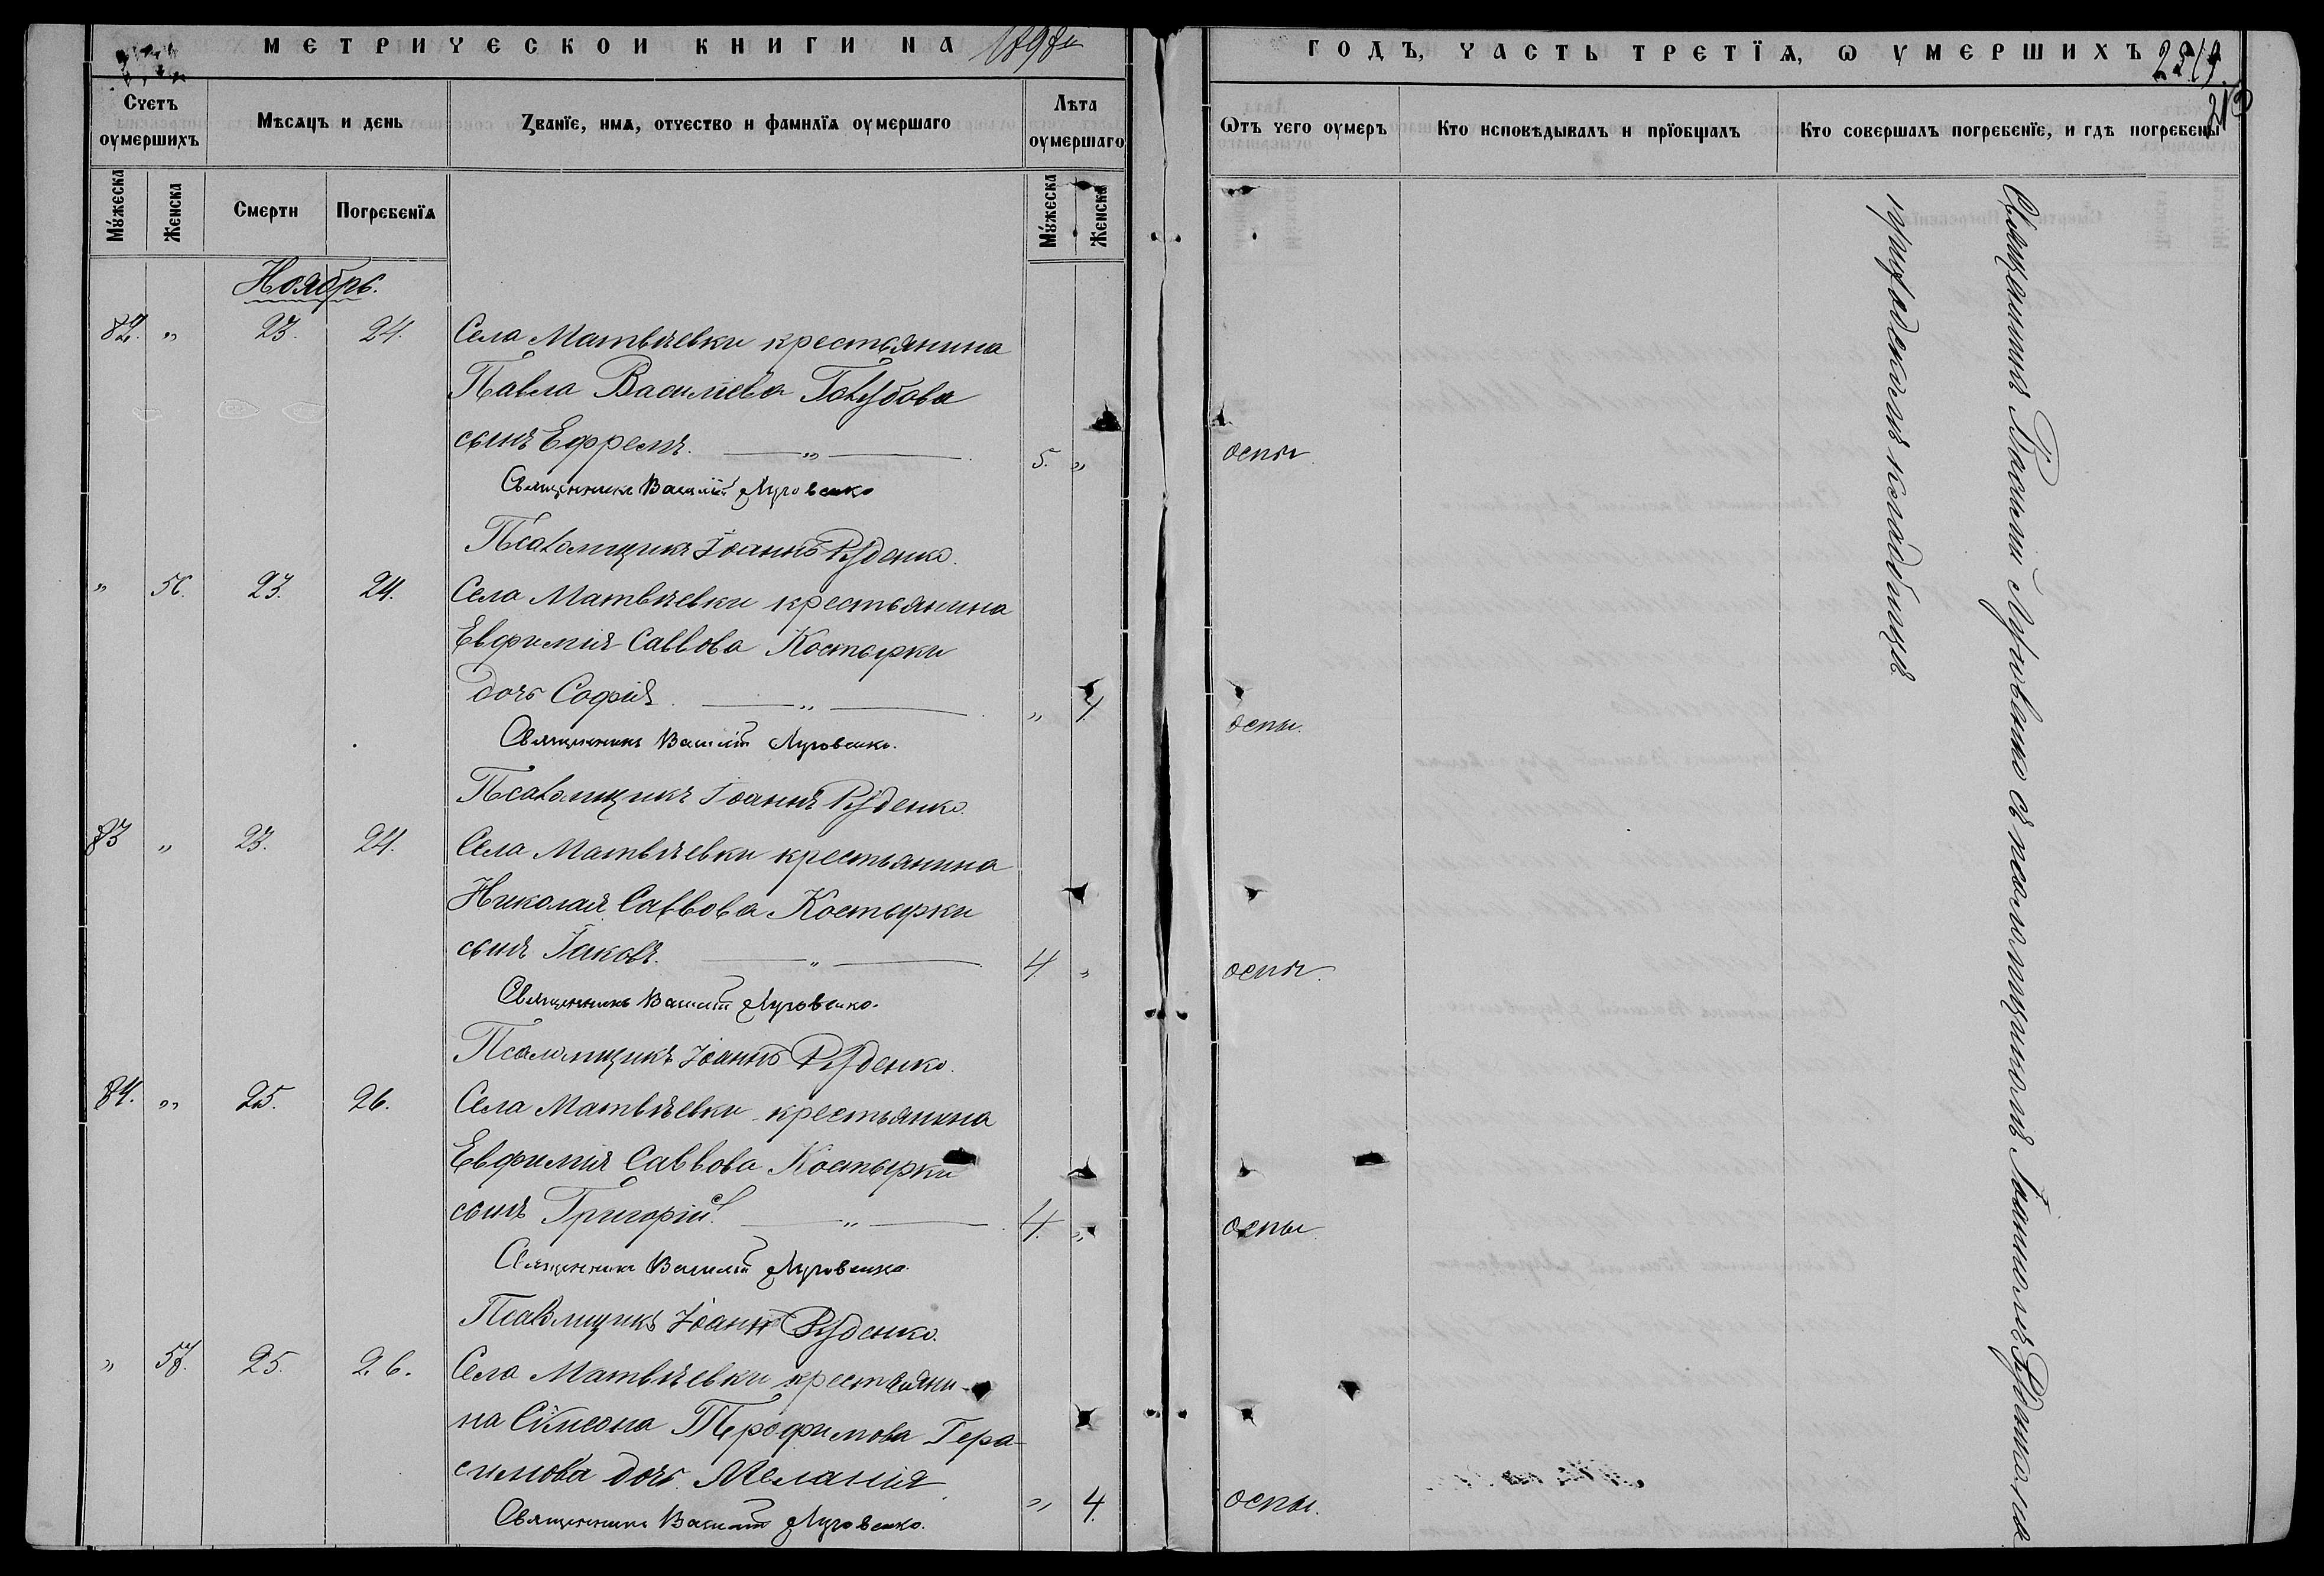 МЕТРИЧЕСКОЙ КНИГИ НА 1898й
ГОДЪ, ЧАСТЬ ТРЕТЇѦ, Ѡ УМЕРШИХЪ
213
Счетъ оумершихъ
Мѣсяцъ и день
Званїе, имѧ, отчество и фамилїѧ оумершаго
Лѣта оумершаго
Ѿтъ чего оумеръ
Кто исповѣдывалъ и прїобщалъ
Кто совершалъ погребенїе, и гдѣ погребены
Мꙋжеска
Женска
Смерти
Погребенїѧ
Мꙋжеска
Женска
Ноябрь.
82. " 23. 24. Села Матвѣевки крестьянина
Павла Василіева Голубова
сынъ Ефремъ. — " — 5. " оспы
Священникъ Василій Луговенко
Псаломщикъ Іоаннъ Руденко.
" 56. 23. 24. Села Матвѣевки крестьянина
Евфимія Саввова Костырки
дочь Софія. — " — " 4 оспы.
Священникъ Василій Луговенко.
Псаломщикъ Іоаннъ Руденко.
83 " 23. 24. Села Матвѣевки крестьянина
Николая Саввова Костырки
сынъ Іаковъ. — " — 4 " оспы.
Священникъ Василій Луговенко.
Псаломщикъ Іоаннъ Руденко.
84. " 25. 26. Села Матвѣевки крестьянина
Евфимія Саввова Костырки
сынъ Григорій. — " — 4. " оспы
Священникъ Василій Луговенко.
Псаломщикъ Іоаннъ Руденко.
" 57. 25. 26. Села Матвѣевки крестьяни-
на Сѵмеона Трофимова Гера-
симова дочь Меланія " 4. оспы.
Священникъ Василій Луговенко.
Священникъ Василій Луговенко съ псаломщикомъ Іоанномъ Руденко на
приходскомъ кладбищѣ